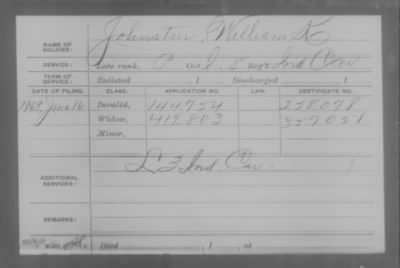 NAME OF SOLDIER: Johnston, William K
SERVICE: Late rank, P Co. I, 2 Reg't Ind Cav
TERM OF SERVICE: Enlisted , 1 Discharged , 1
DATE OF FILING. CLASS. APPLICATION NO. LAW. CERTIFICATE NO.
1869 June 16 Invalid, 144.754 258.078
Widow, 419.803 357.051
Minor,
ADDITIONAL SERVICES: L 3 Ind Cav.
REMARKS:
Died , 1 , at